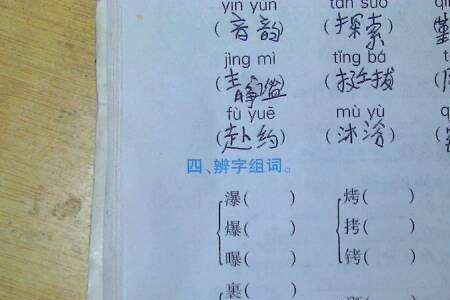 yīn yùn tàn suǒ
(音韵) (探索)
jìng mì tǐng bá
(静谧) (挺拔)
fù yuē mù yù
(赴约) (沐浴)
四、辨字组词。
瀑( ) 烤( )
爆( ) 拷( )
曝( ) 铐( )
裹( )